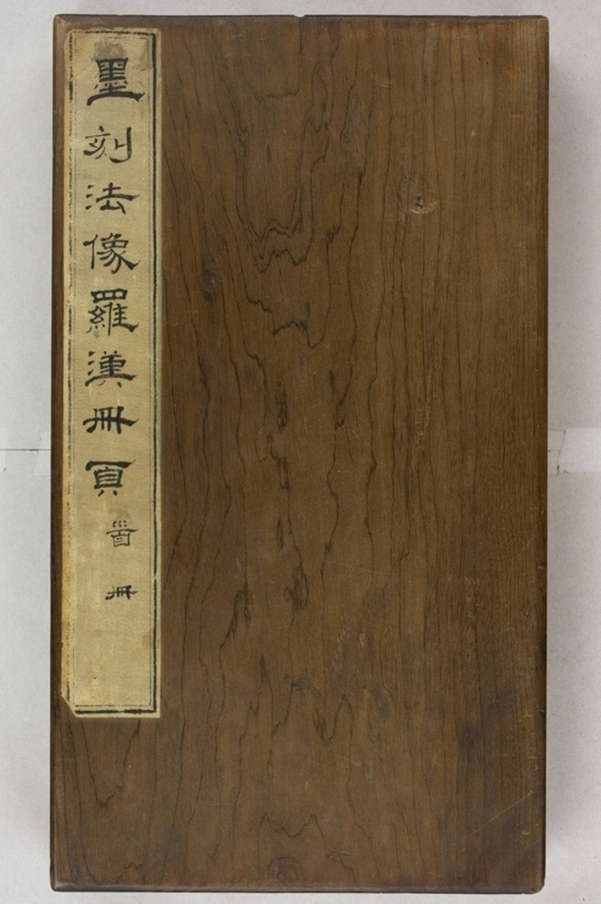 墨刻法像羅漢冊頁
首冊